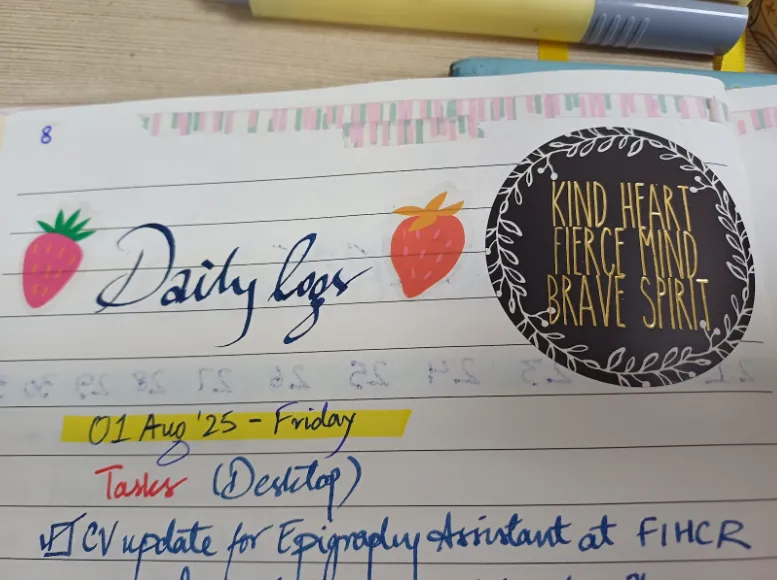 8
Daily logs
KIND HEART
FIERCE MIND
BRAVE SPIRIT
01 Aug '25 - Friday
Tasks (Desktop)
CV update for Epigraphy Assistant at FIHCR